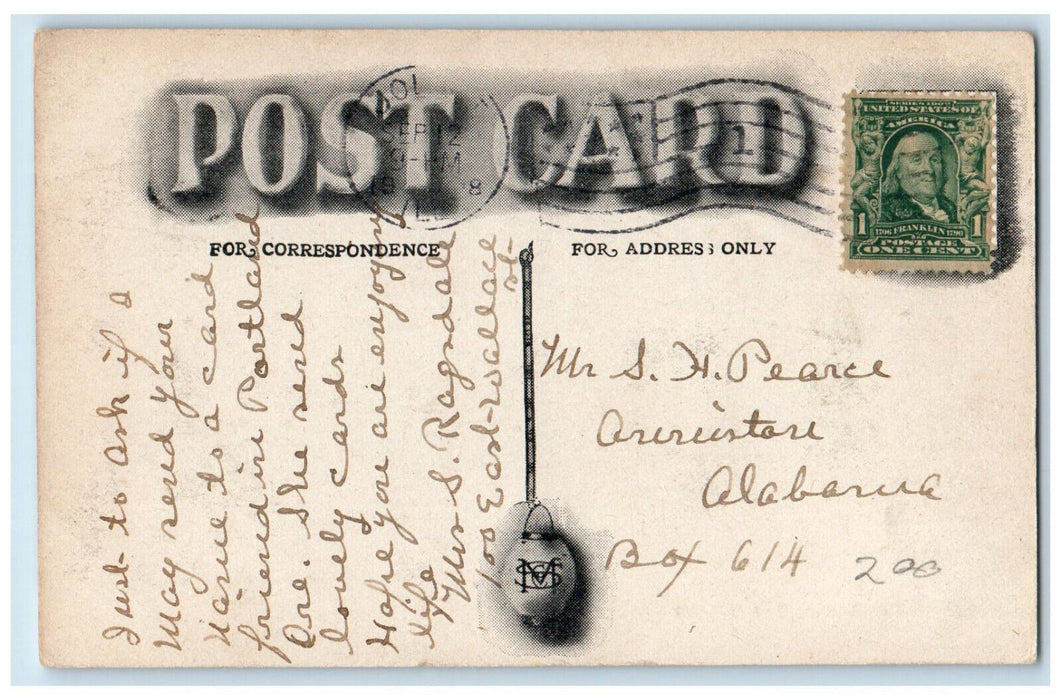 POST CARD
SEP 12
8
SERIES 1902
UNITED STATES OF
AMERICA
1 1
1706 FRANKLIN 1790
POSTAGE
ONE CENT
FOR CORRESPONDENCE
FOR ADDRESS ONLY
Just to ask if I
May send your
name to a card
friend in Portland
Ore. She send
lovely cards
Hope you are enjoying
life
Mrs S. Ragsdale
100 East-Wallace
st-
Mr S. H. Pearce
Anniston
Alabama
Box 614
200